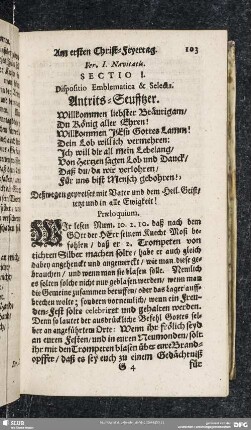 Am ersten Christ-Feyertag. 103
Fer. I. Navitatis.
SECTIO I.
Dispositio Emblematica & Selecta.
Antrits-Seufftzer.
Willkommen liebster Bräutigam/
Du König aller Ehren!
Willkommen JEsu Gottes Lamm!
Dein Lob will ich vermehren:
Ich will dir all mein Lebelang/
Von Hertzen sagen Lob und Danck/
Daß du da wir verlohren/
Für uns bist Mensch gebohren!
Deßwegen gepreiset mit Vater und dem Heil. Geist/
jetzt und in alle Ewigkeit!
Præloquium.
WIr lesen Num. 10. 2. 10. daß nach dem
GOtt der HErr seinem Knecht Mosi be-
fohlen / daß er 2. Trompeten von
tichten Silber machen solte / habe er auch gleich
dabey angehenckt und angemerckt / wie man diese ge-
brauchen / und wenn man sie blasen solle. Nemlich
es solten solche nicht nur geblasen werden / wenn man
die Gemeine zusammen beruffen / oder das Lager auff-
brechen wolte; sondern vornemlich / wenn ein Freu-
den-Fest solte celebriret und gehalten werden.
Denn so lautet der ausdrückliche Befehl Gottes sel-
ber an angeführtem Orte: Wenn ihr frölich seyd
an euren Festen / und in euren Neumonden / solt
ihr mit den Trompeten blasen über eure Brand-
opffer / daß es sey euch zu einem Gedächtniß
G 4 für